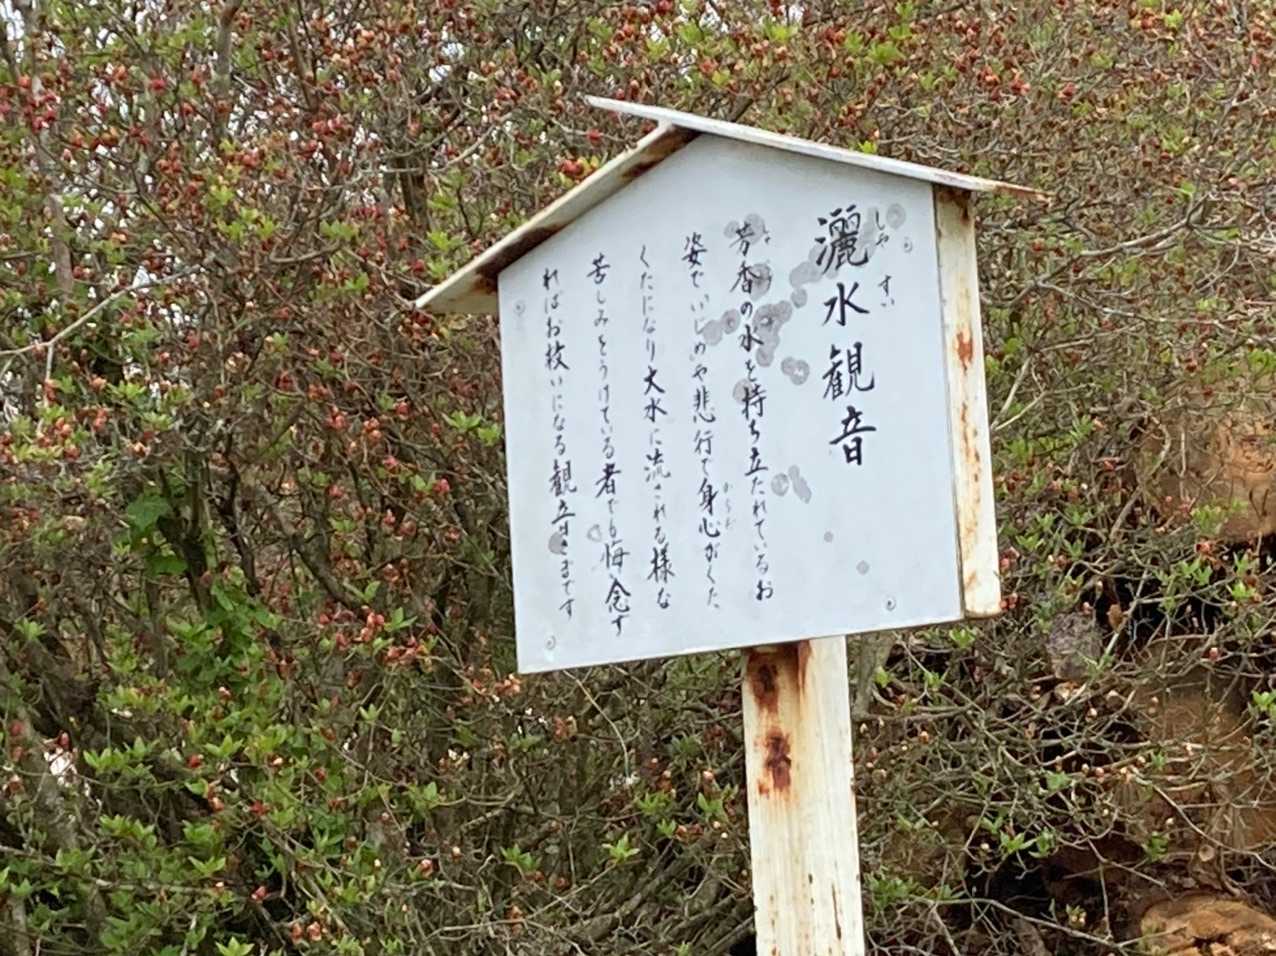 灑水観音
しゃすい
芳香の水を持ち立たれているお
姿でいじめや悲行で身心がくた
からだ
くたになり大水に流これる様な
苦しみをうけている者でも悔念す
ればお救いになる観音さまです